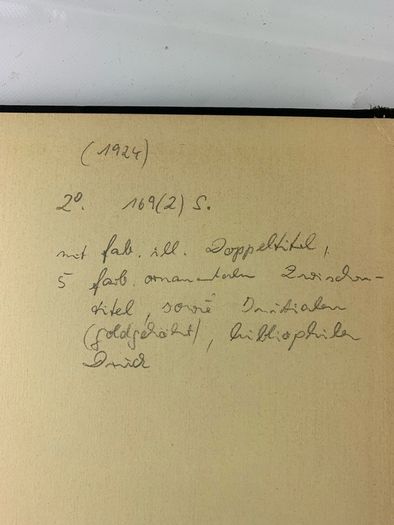 (1924)
2°. 169(2) S.
mit fab. ill. Doppeltitel,
5 farb. ornamentalen Zwischen-
titel, sowie Initialen
(goldgehöht), bibliophiler
Druck